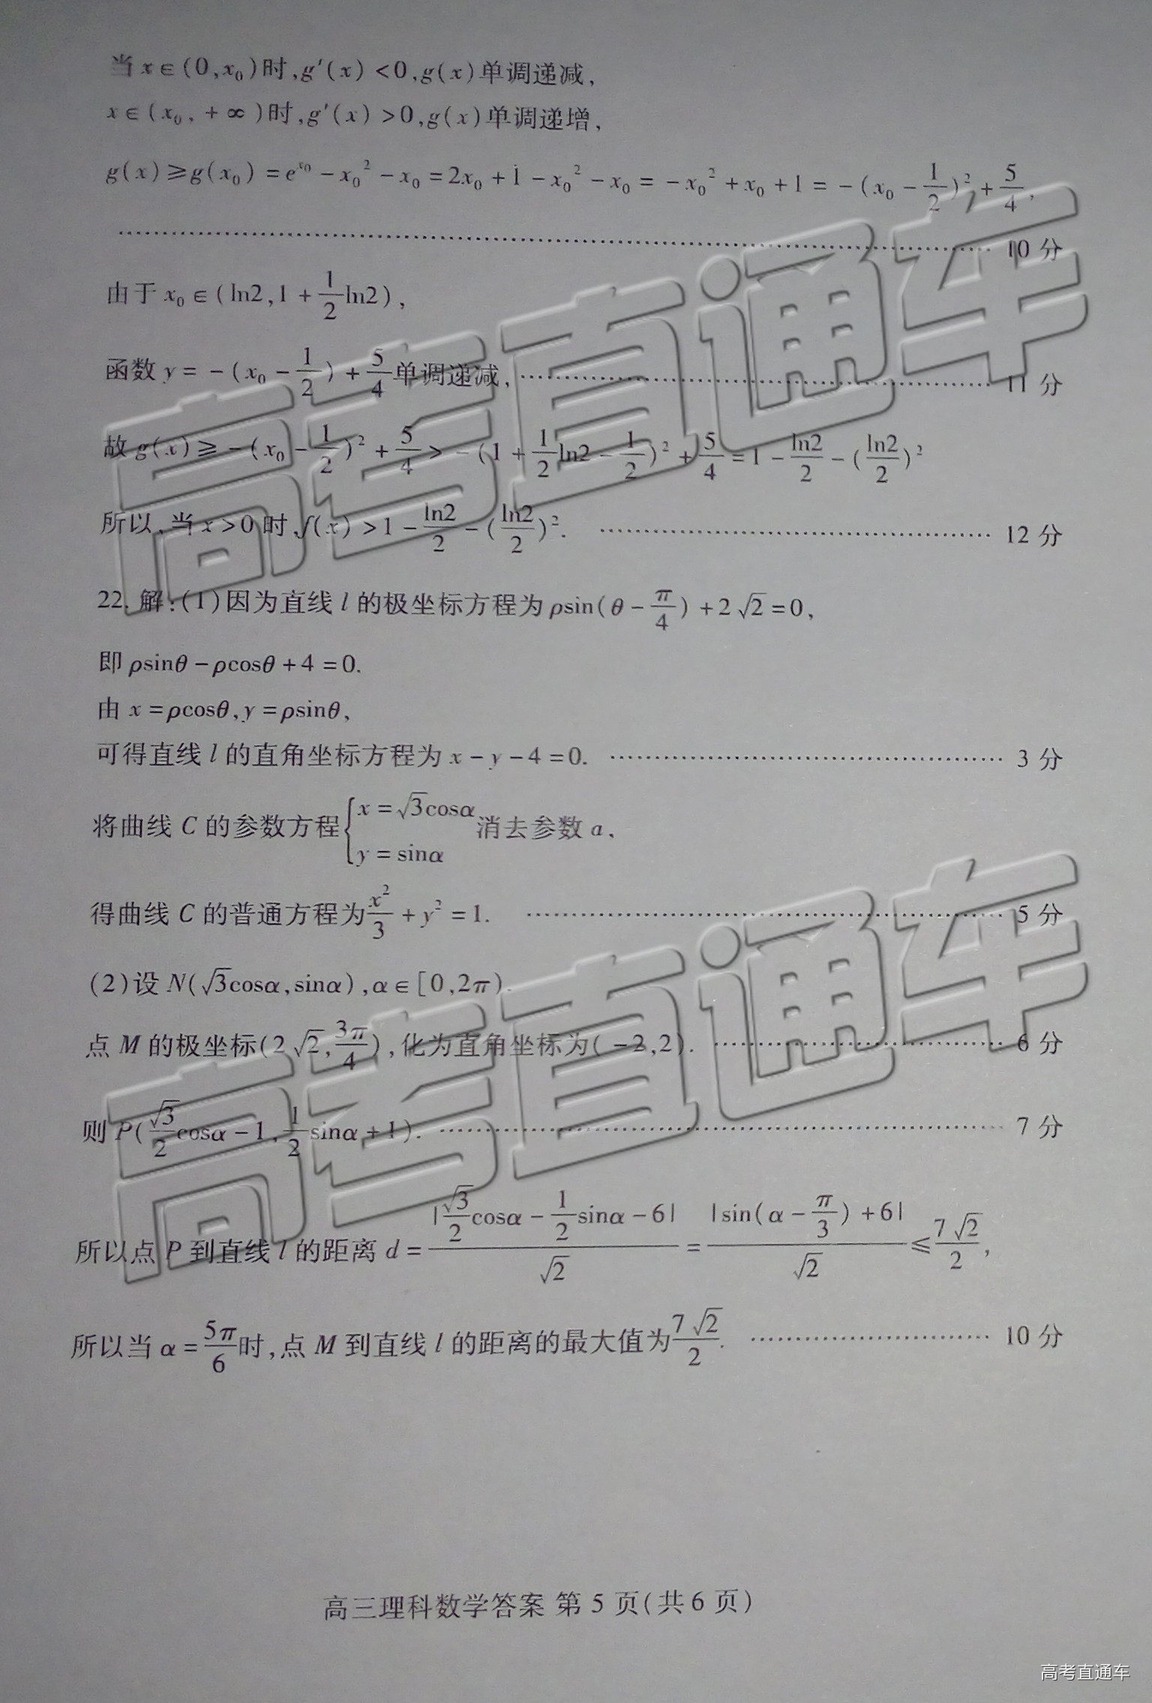 当 x∈(0,x₀)时,g′(x)<0,g(x)单调递减,
x∈(x₀,+∞)时,g′(x)>0,g(x)单调递增,
g(x)≥g(x₀)=e^{x₀}-x₀²-x₀=2x₀+1-x₀²-x₀=-x₀²+x₀+1=-(x₀-\frac{1}{2})²+\frac{5}{4},
………… 10 分
由于 x₀∈(ln2,1+\frac{1}{2}ln2),
函数 y=-(x₀-\frac{1}{2})+\frac{5}{4}单调递减,………… 11 分
故 g(x)≥-(x₀-\frac{1}{2})²+\frac{5}{4}>-(1+\frac{1}{2}ln2-\frac{1}{2})²+\frac{5}{4}=1-\frac{ln2}{2}-(\frac{ln2}{2})²
所以,当 x>0 时,f(x)>1-\frac{ln2}{2}-(\frac{ln2}{2})². ………… 12 分
22. 解:(1)因为直线 l 的极坐标方程为 ρsin(θ-\frac{π}{4})+2√2=0,
即 ρsinθ-ρcosθ+4=0.
由 x=ρcosθ,y=ρsinθ,
可得直线 l 的直角坐标方程为 x-y-4=0. ………… 3 分
将曲线 C 的参数方程{x=√3cosα y=sinα 消去参数 a,
得曲线 C 的普通方程为\frac{x²}{3}+y²=1. ………… 5 分
(2)设 N(√3cosα,sinα),α∈[0,2π).
点 M 的极坐标(2√2,\frac{3π}{4}),化为直角坐标为(-2,2). ………… 6 分
则 P(\frac{√3}{2}cosα-1,\frac{1}{2}sinα+1). ………… 7 分
所以点 P 到直线 l 的距离 d=\frac{|\frac{√3}{2}cosα-\frac{1}{2}sinα-6|}{√2}=\frac{|sin(α-\frac{π}{3})+6|}{√2}≤\frac{7√2}{2},
所以当 α=\frac{5π}{6}时,点 M 到直线 l 的距离的最大值为\frac{7√2}{2}. ………… 10 分
高三理科数学答案 第 5 页(共 6 页)
高考直通车
高考直通车
高考直通车